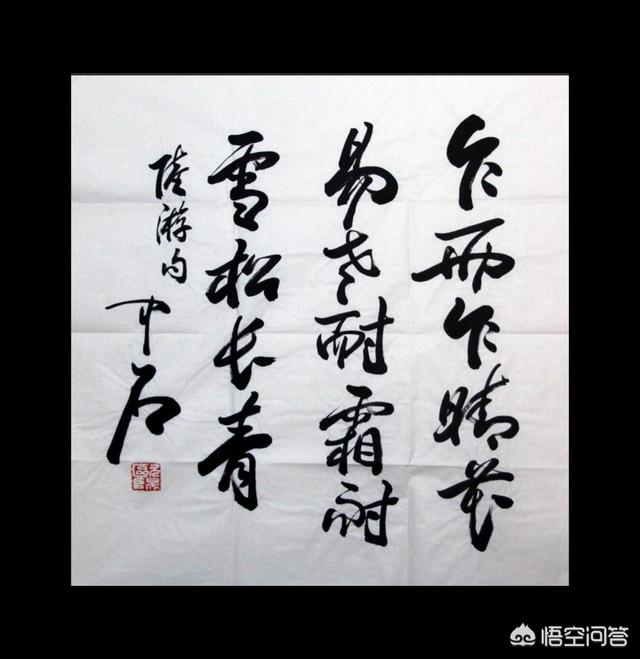 乍雨乍晴花
易老耐霜耐
雪松长青
陆游句
中石
悟空问答